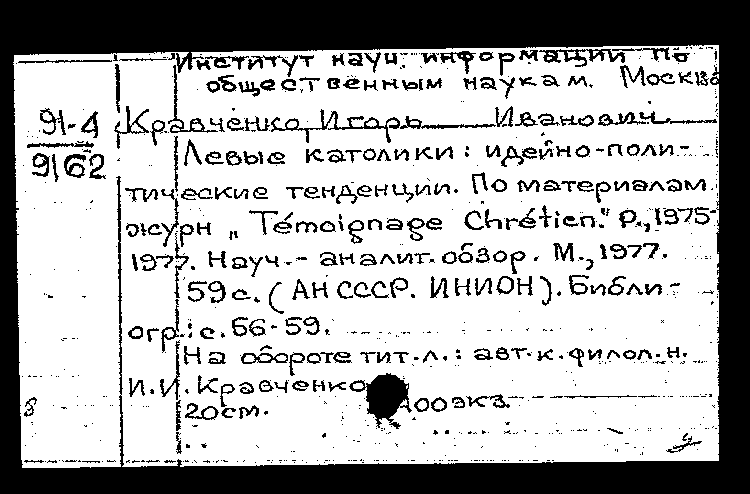 Институт науч. информации по
общественным наукам. Москва
91-4 Кравченко, Игорь Иванович.
9162 Левые католики: идейно-поли-
тические тенденции. По материалам
журн „Témoignage Chrétien." P., 1975-
1977. Науч.- аналит. обзор. М., 1977.
59 с. (АН СССР. ИНИОН). Библи-
огр.: с. 56-59.
На обороте тит. л.: авт. к. филол. н.
И.И. Кравченко
8 20 см. 400 экз.